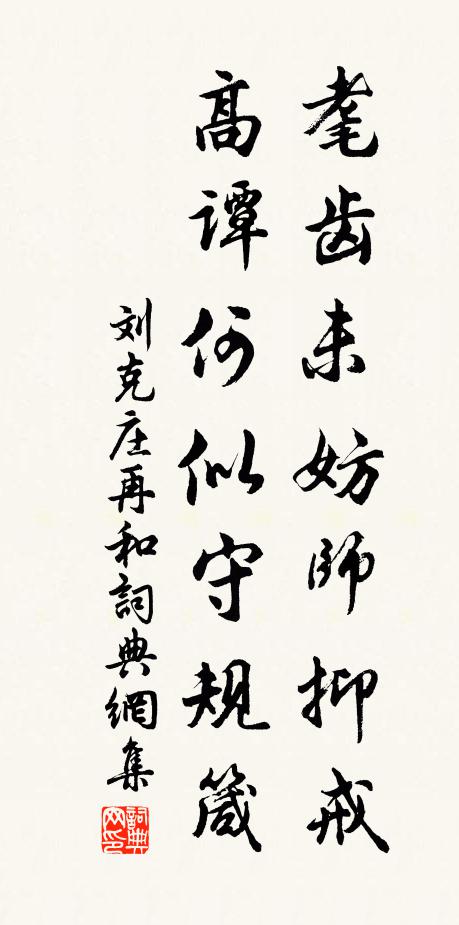 耄齿未妨師抑戒
高谭何似守規箴
刘克庄再和詞典網集
詞典网印